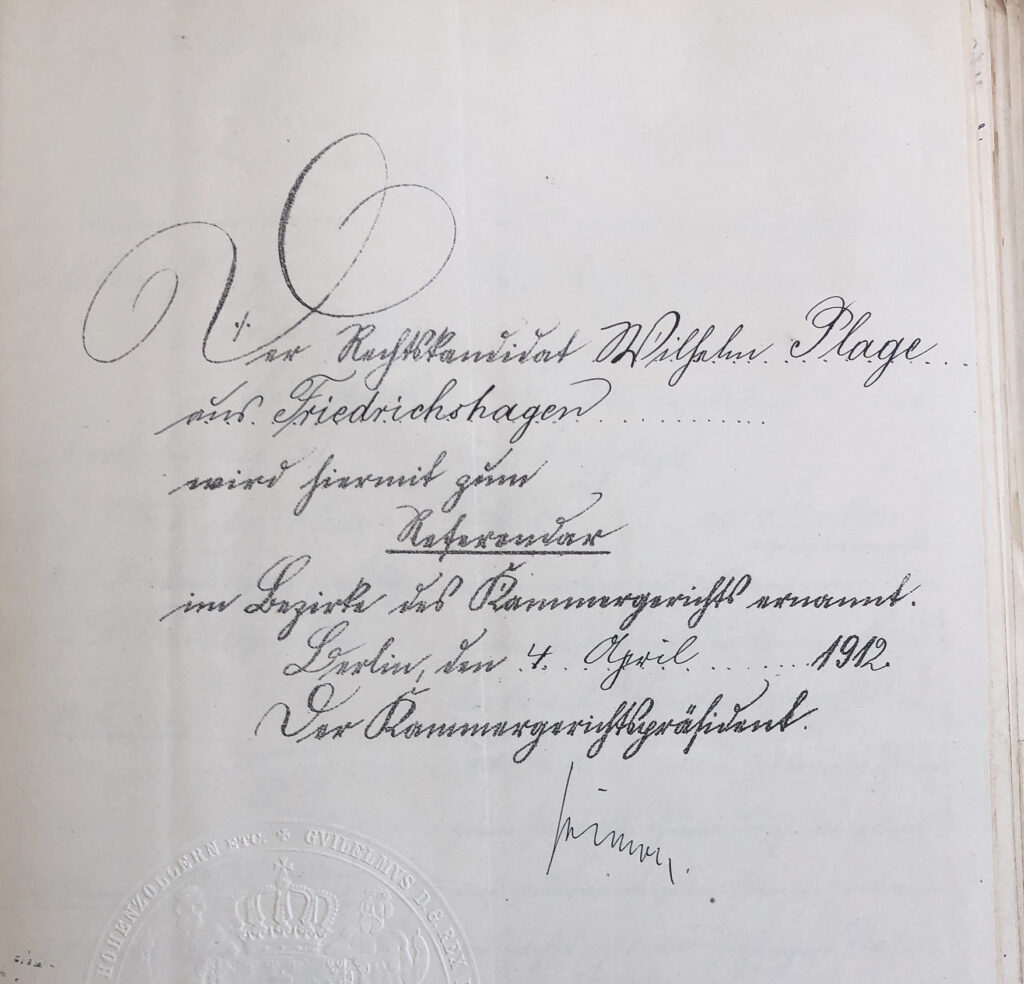 Der Rechtskandidat Wilhelm Plage
aus Friedrichshagen
wird hiermit zum
Referendar
im Bezirke des Kammergerichts ernannt.
Berlin, den 4. April 1912.
Der Kammergerichtspräsident.
HOHENZOLLERN ETC. ✠ GVILELMVS D. G. REX